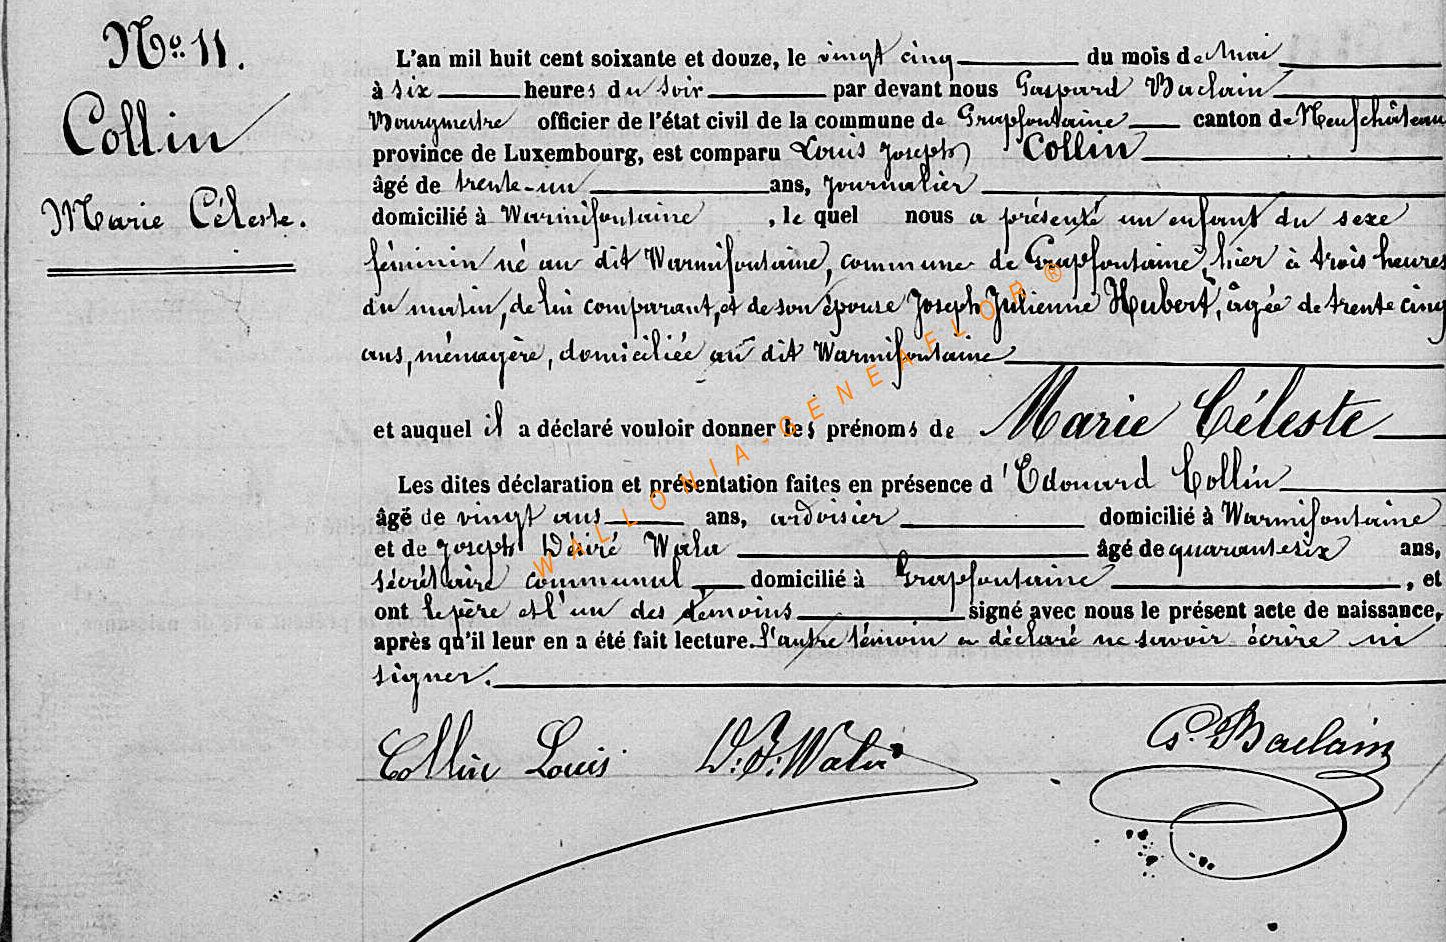 No. 11.
Collin
Marie Céleste.
L'an mil huit cent soixante et douze, le vingt cinq du mois de Mai
à six heures du soir par devant nous Gaspard Baclain
Bourgmestre officier de l'état civil de la commune de Grapfontaine canton de Neufchâteau
province de Luxembourg, est comparu Louis Joseph Collin
âgé de trente-un ans, journalier
domicilié à Warmifontaine , le quel nous a présenté un enfant du sexe
féminin né au dit Warmifontaine, commune de Grapfontaine, hier à trois heures
du matin, de lui comparant, et de son épouse Joseph Julienne Hubert, âgée de trente cinq
ans, ménagère, domiciliée au dit Warmifontaine
et auquel il a déclaré vouloir donner les prénoms de Marie Céleste
Les dites déclaration et présentation faites en présence d'Edouard Collin
âgé de vingt ans ans, ardoisier domicilié à Warmifontaine
et de Joseph Désiré âgé de quarante six ans,
sécrétaire communal domicilié à Grapfontaine , et
ont le père et l'un des témoins signé avec nous le présent acte de naissance,
après qu'il leur en a été fait lecture. l'autre témoin a déclaré ne savoir écrire ni
signer.
Collin Louis
G. Baclain
WALLONIA-GENEAFLOR®